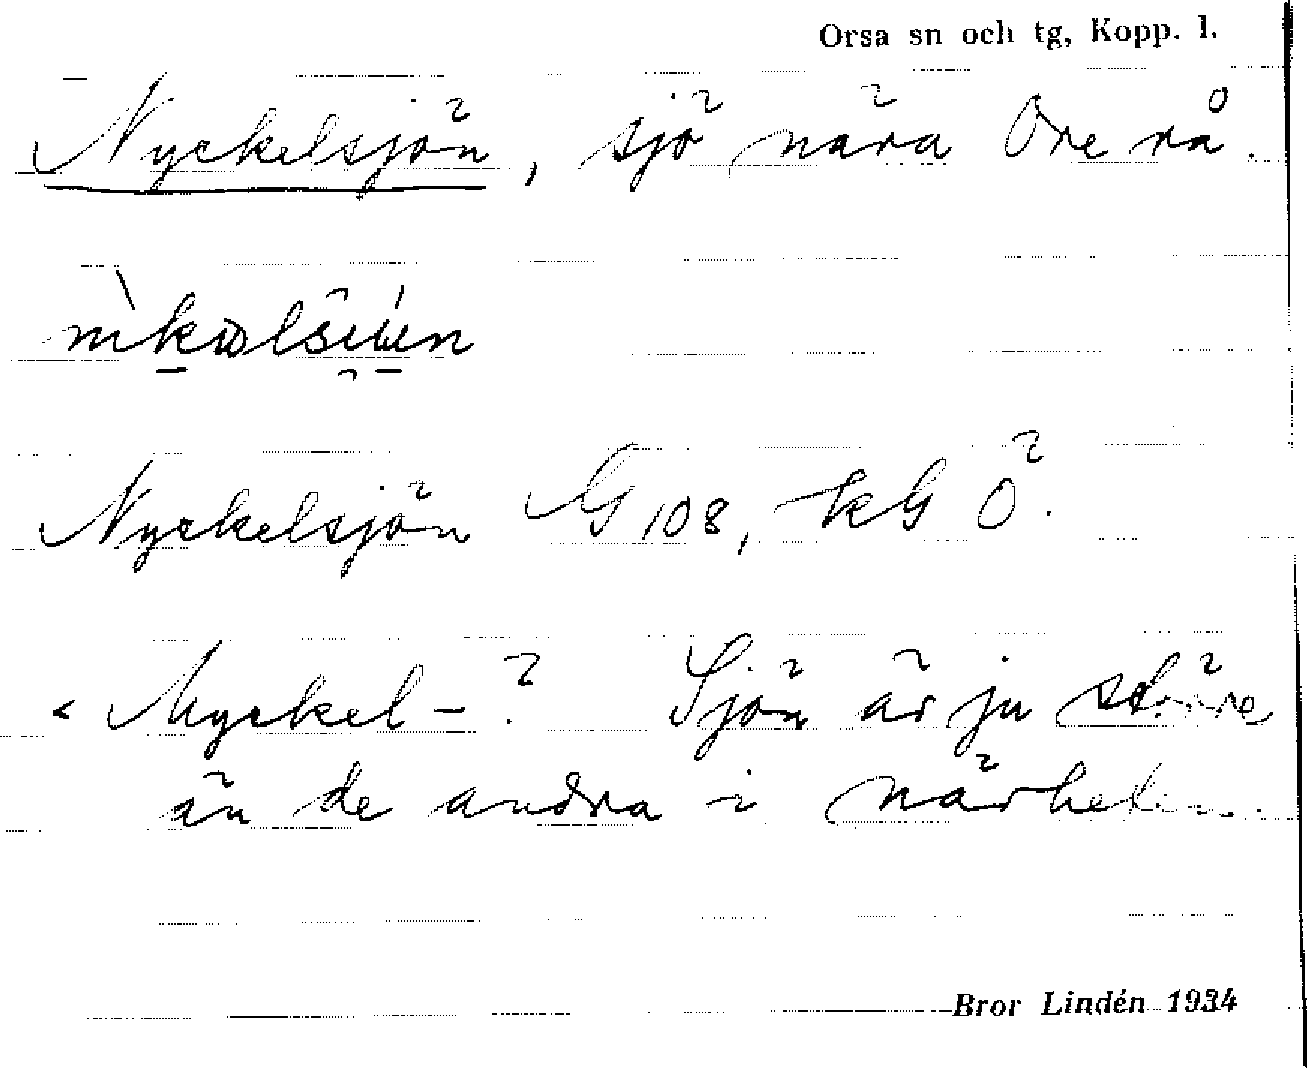 Orsa sn och tg, Kopp. l.
Nyckelsjön, sjö nära Ore rå.
Nyckelsjön G 108, kG Ö.
< Myckel-? Sjön är ju större
än de andra i närheten.
Bror Lindén 1934